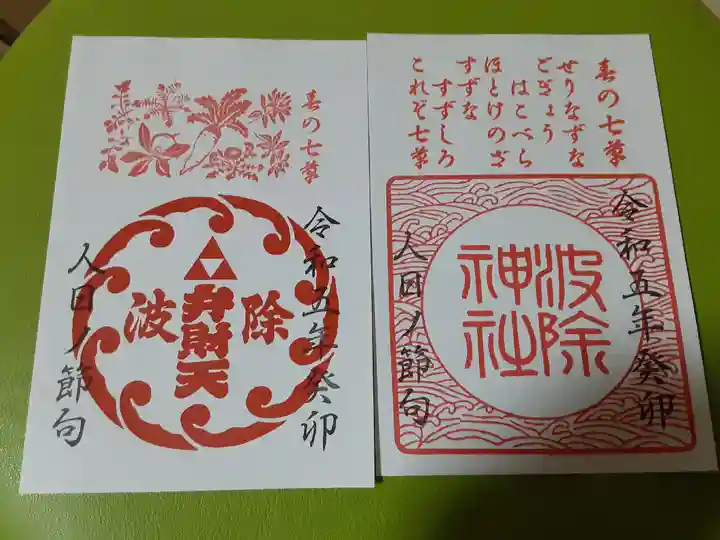 春の七草
令和五年癸卯
除
波
弁財天
人日ノ節句
春の七草
せりなずな
ごぎょう
はこべら
ほとけのざ
すずな
すずしろ
これぞ七草
令和五年癸卯
波除
神社
人日ノ節句